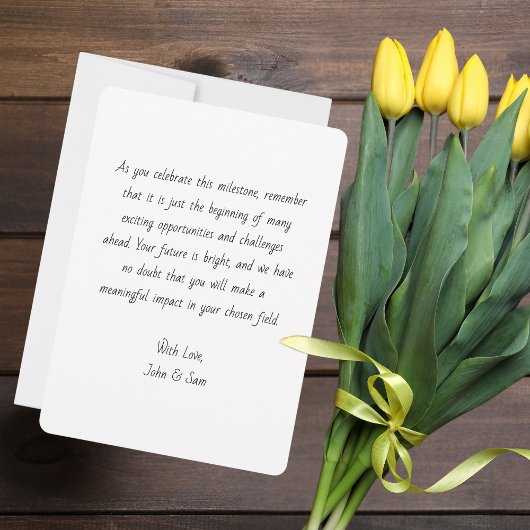 As you celebrate this milestone, remember
that it is just the beginning of many
exciting opportunities and challenges
ahead. Your future is bright, and we have
no doubt that you will make a
meaningful impact in your chosen field.
With Love,
John & Sam